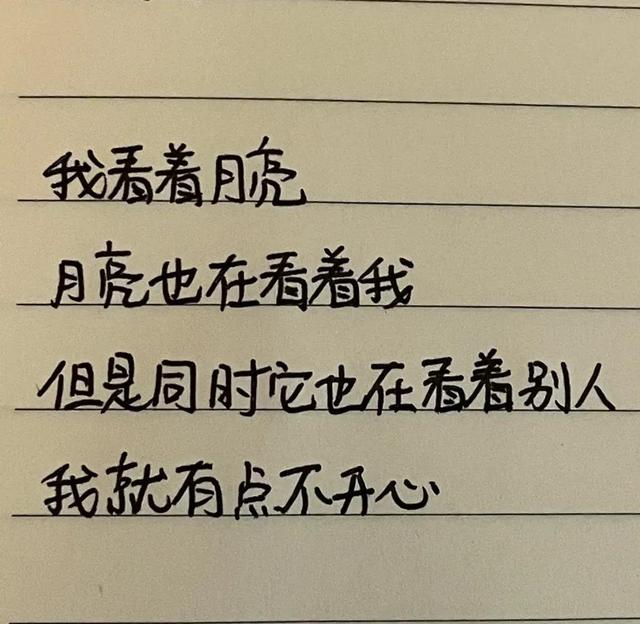 我看着月亮
月亮也在看着我
但是同时它也在看着别人
我就有点不开心